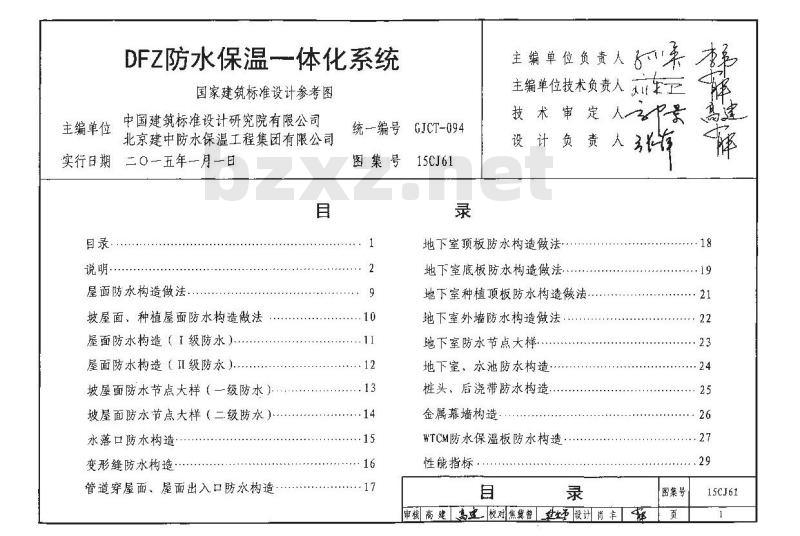 DFZ防水保温一体化系统
国家建筑标准设计参考图
主编单位 中国建筑标准设计研究院有限公司
北京建中防水保温工程集团有限公司
统一编号 GJCT-094
实行日期 二〇一五年一月一日
图集号 15CJ61
主编单位负责人
主编单位技术负责人
技术审定人
设计负责人
bzxz.net
目 录
目录 1
说明 2
屋面防水构造做法 9
坡屋面、种植屋面防水构造做法 10
屋面防水构造(Ⅰ级防水) 11
屋面防水构造(Ⅱ级防水) 12
坡屋面防水节点大样(一级防水) 13
坡屋面防水节点大样(二级防水) 14
水落口防水构造 15
变形缝防水构造 16
管道穿屋面、屋面出入口防水构造 17
地下室顶板防水构造做法 18
地下室底板防水构造做法 19
地下室种植顶板防水构造做法 21
地下室外墙防水构造做法 22
地下室防水节点大样 23
地下室、水池防水构造 24
桩头、后浇带防水构造 25
金属幕墙构造 26
WTCM防水保温板防水构造 27
性能指标 29
目 录 图集号 15CJ61
审核 高建 高建 校对 设计 肖丰 页 1